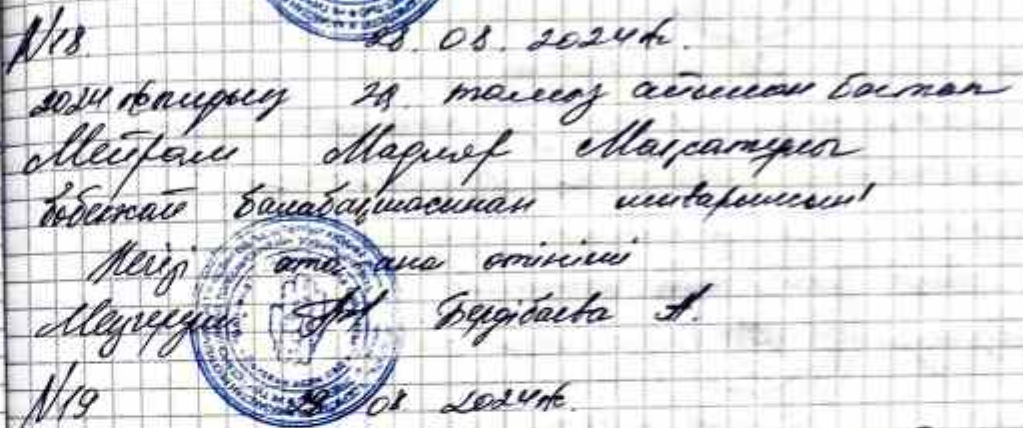 №18. 28. 08. 2024ж.
2024 жылдың 29 тамыз айынан бастап
Мейрам Мадияр Мақсатұлы
бөбекжай балабақшасынан шығарылсын!
Негізі ата ана өтініші
Меңгеруші Бердібаева А.
№19 29 08 2024ж.